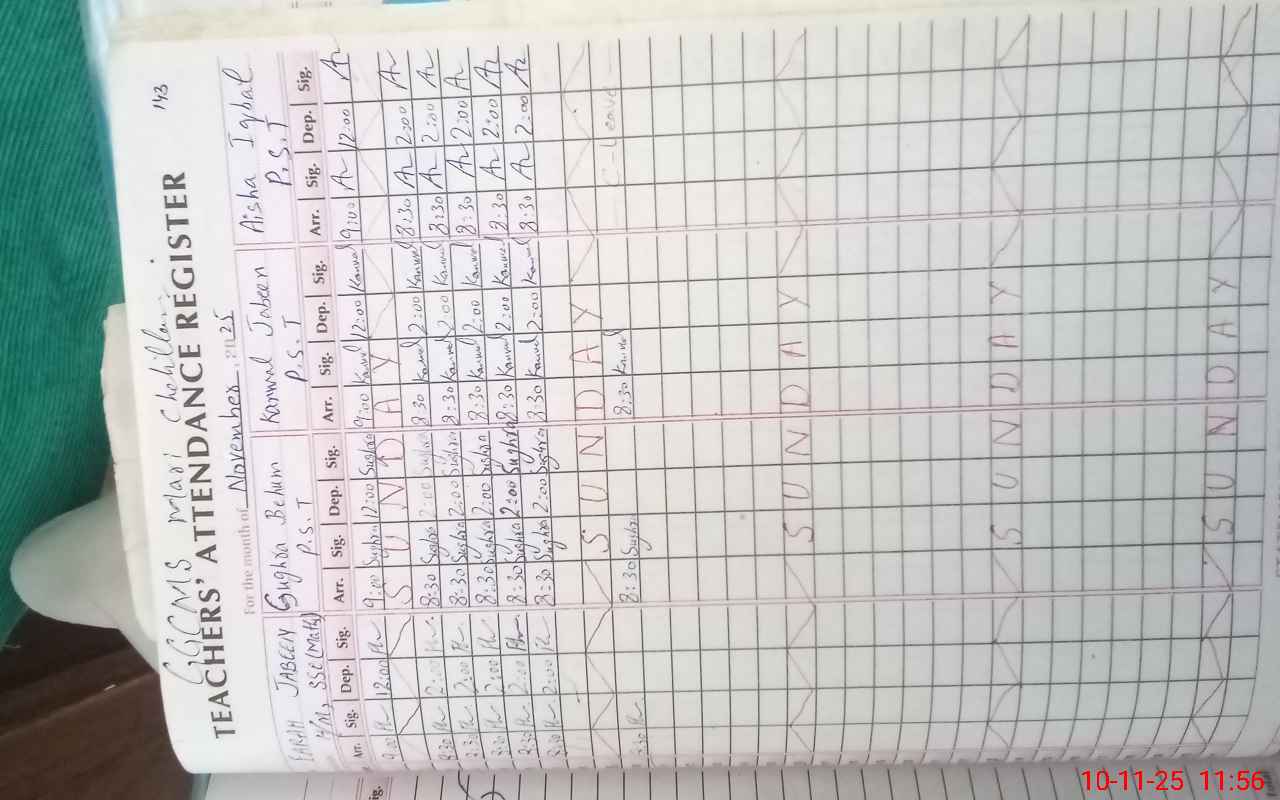 143
GGCMS Mari
TEACHERS' ATTENDANCE REGISTER
For the month of November, 2025
FARAH JABEEN Sughra Behum Kanwal Jabeen Aisha Iqbal
H/M, SSE(Math) P.S.T P.S.T P.S.T
Arr. Sig. Dep. Sig. Arr. Sig. Dep. Sig. Arr. Sig. Dep. Sig. Arr. Sig. Dep. Sig.
9:00 12:00 9:00 Sughra 12:00 Sughra 9:00 Kanwal 12:00 Kanwal 9:00 12:00
SUNDAY
8:30 2:00 8:30 Sughra 2:00 Sughra 8:30 Kanwal 2:00 Kanwal 8:30 2:00
8:30 2:00 8:30 Sughra 2:00 Sughra 8:30 Kanwal 2:00 Kanwal 8:30 2:00
8:30 2:00 8:30 Sughra 2:00 Sughra 8:30 Kanwal 2:00 Kanwal 8:30 2:00
8:30 2:00 8:30 Sughra 2:00 Sughra 8:30 Kanwal 2:00 Kanwal 8:30 2:00
8:30 2:00 8:30 Sughra 2:00 Sughra 8:30 Kanwal 2:00 Kanwal 8:30 2:00
SUNDAY
8:30 8:30 Sughra 8:30 Kanwal C-Leave
SUNDAY
SUNDAY
SUNDAY
10-11-25 11:56